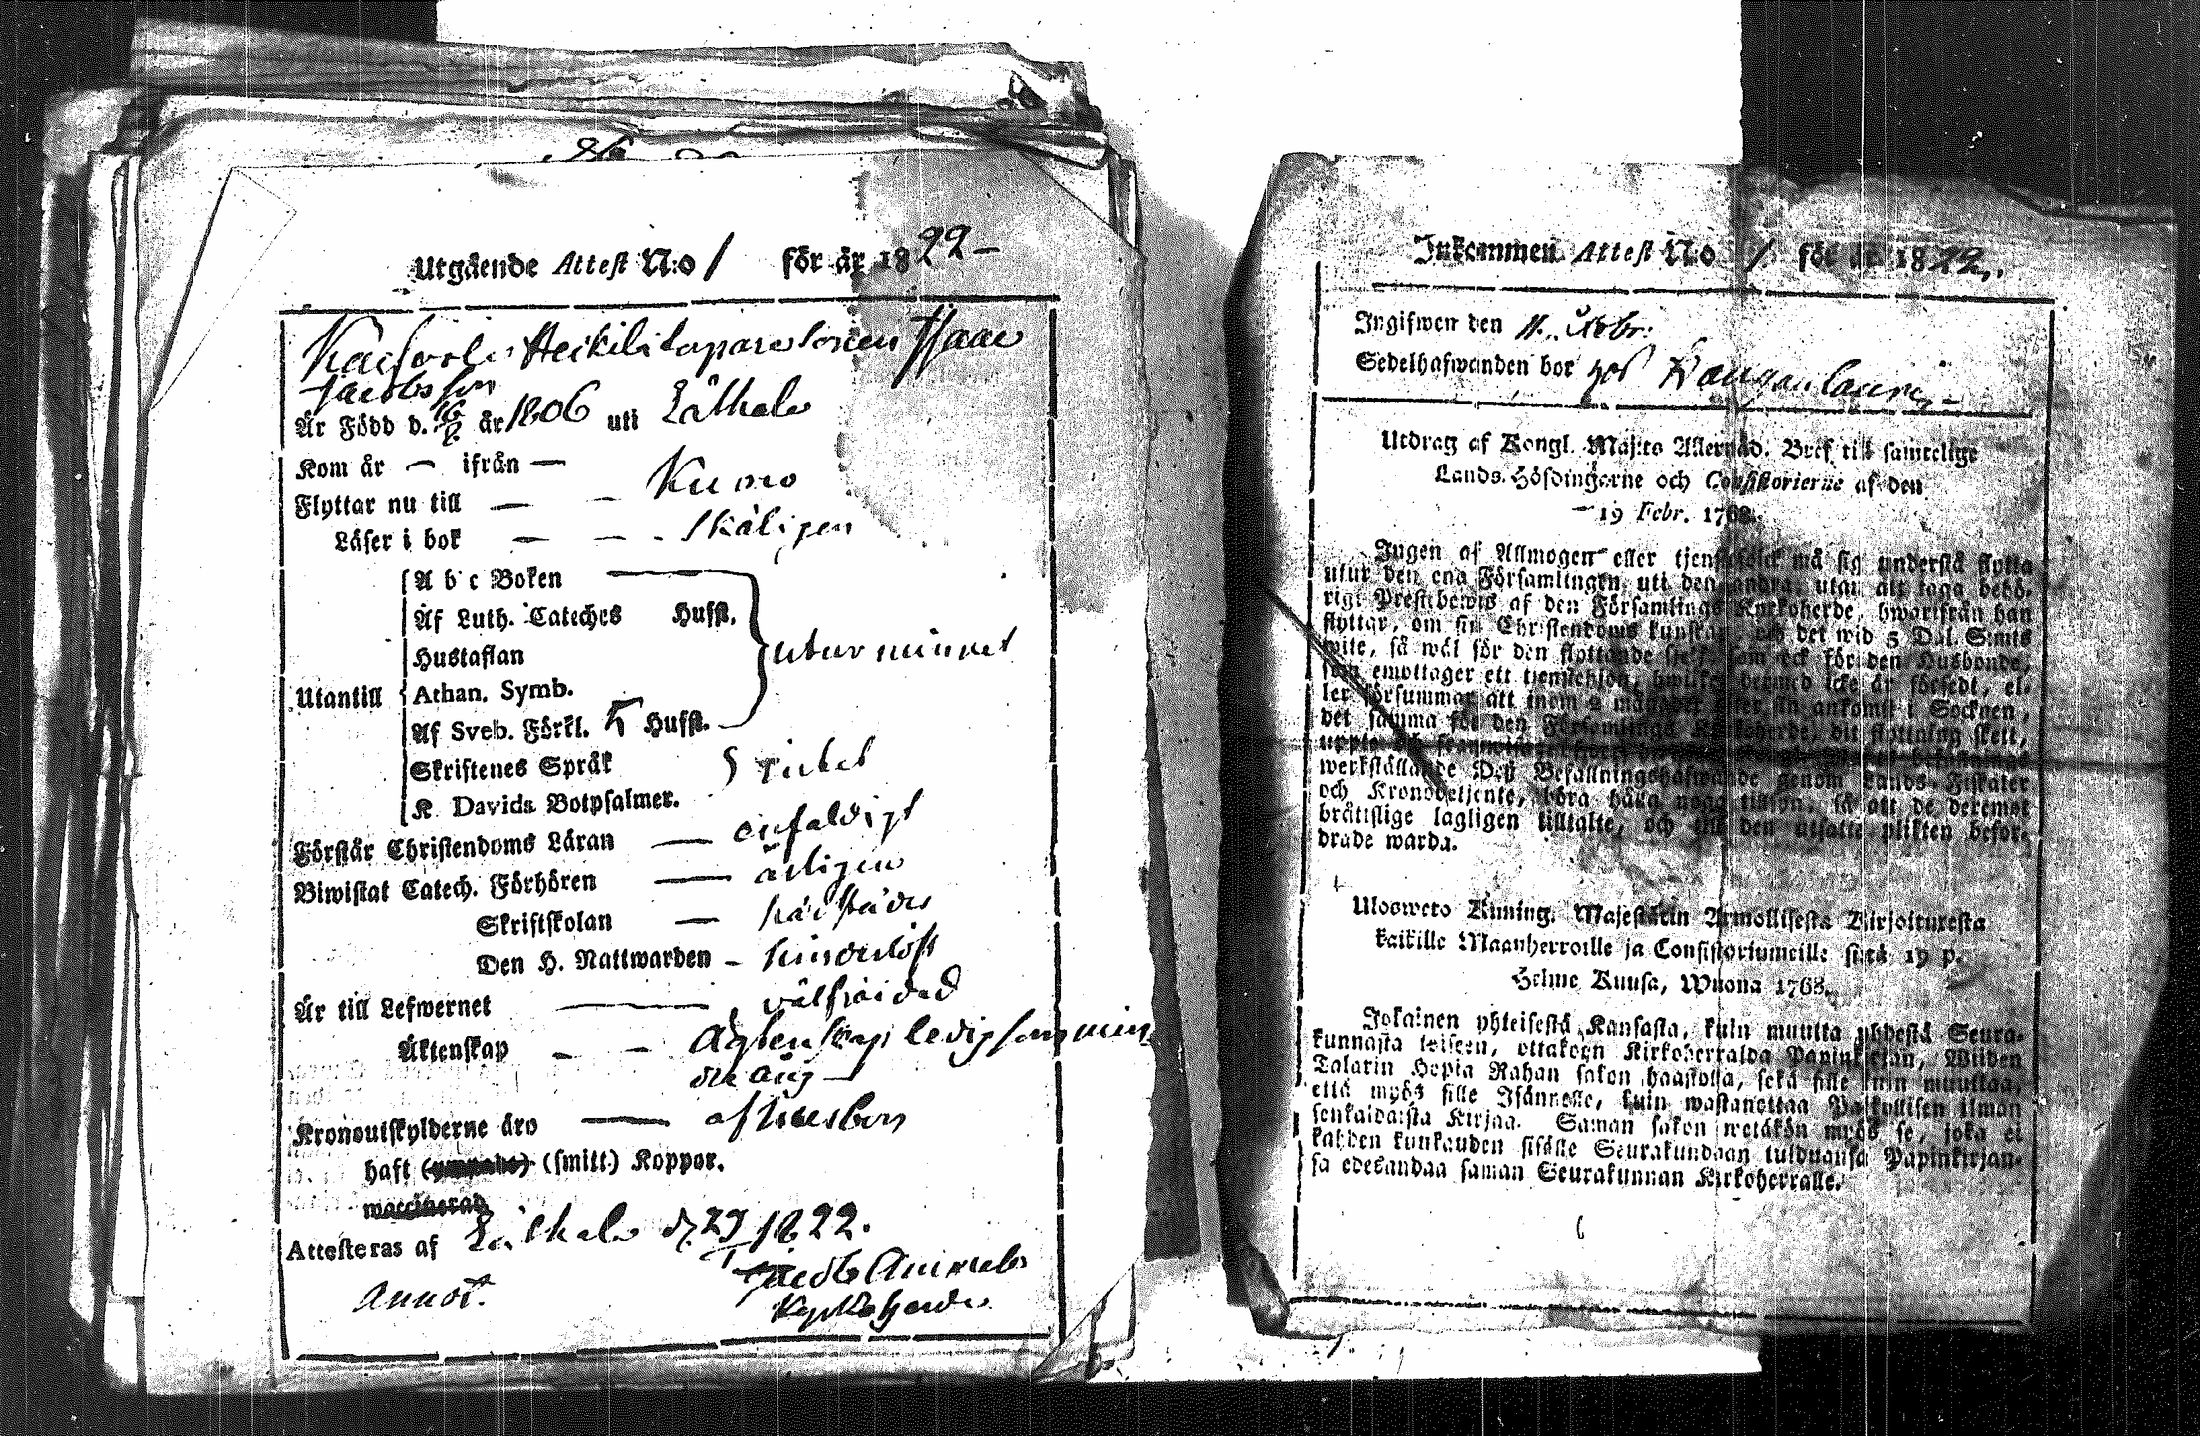 Utgående Attest N:o 1 för år 1822 –
Heikilä Isaac
Jacobsson
Är Född d. 16/2 år 1806 uti Låthala
Kom år — ifrån —
Flyttar nu till — — Kumo
Läser i bok — — - skäligen
A b c Boken
Af Luth. Cateches Hufst.
Hustaflan utur minnet
Utantill Athan. Symb.
Af Sveb. Förkl. 5 Hufst.
Skriftenes Språk
K. Davids Botpsalmer.
Förstår Christendoms Läran — enfaldigt
Biwistat Catech. Förhören — årligen
Skriftskolan — härstädes
Den H. Nattwarden – hinderlöst
Är till Lefwernet — välfräidad
Äktenskap — — Ägtenskap ledig
Kronoutskylderne äro —
haft (smitt.) Koppor.
waccinerad
Attesteras af d. 1822.
Jacob
Kyrkoherde
Annot.
Inkommen Attest N:o 1 för år 1822.
Ingifwen den 11. Febr:
Sedelhafwanden bor hos
Utdrag af Kongl. Maj:ts Allernåd. Bref till samtelige
Lands-Höfdingarne och Consistorierne af den
19 Febr. 1768.
Ingen af Allmogen eller tjenstefolck må sig understå flytta
utur den ena Församlingen uti den andra, utan att taga behö-
rigt Prestbewis af den Församlings Kyrkoherde, hwarifrån han
flyttar, om sin Christendoms kunskap, och det wid 5 Dal. S:mts
wite, så wäl för den flyttande sielf, som ock för den Husbonde,
som emottager ett tjenstehjon, hwilket dermed icke är försedt, el-
ler försummar att inom 2 månader efter sin ankomst i Socknen,
det samma för den Församlings Kyrkoherde, dit flyttning skett,
werkställande Dess Befallningshafwande genom Lands-Fiskaler
och Kronobetjente, böra hålla noga tillsyn, så att de deremot
bråttslige lagligen tilltalte, och till den utsatte plikten befor-
drade warda.
Ulosweto Kuning. Majestätin Armollisesta Kirjoituresta
kaikille Maanherroille ja Consistoriumeille siitä 19 p.
Helme Kuusa, Wuona 1768.
Jokainen yhteisestä Kansasta, kuin muutta yhdestä Seura-
kunnasta toiseen, ottakoon Kirkoherralda Papinkirjan, Wiiden
Talarin Hopia Rahan sakon haastolla, sekä sille kuin muuttaa,
että myös sille Isännelle, kuin wastanottaa Palkollisen ilman
senkaldaista Kirjaa. Saman sakon wetäkön myös se, joka ei
kahden kuukauden sisälle Seurakundaan tulduansa Papinkirjan-
sa edesandaa saman Seurakunnan Kirkoherralle.